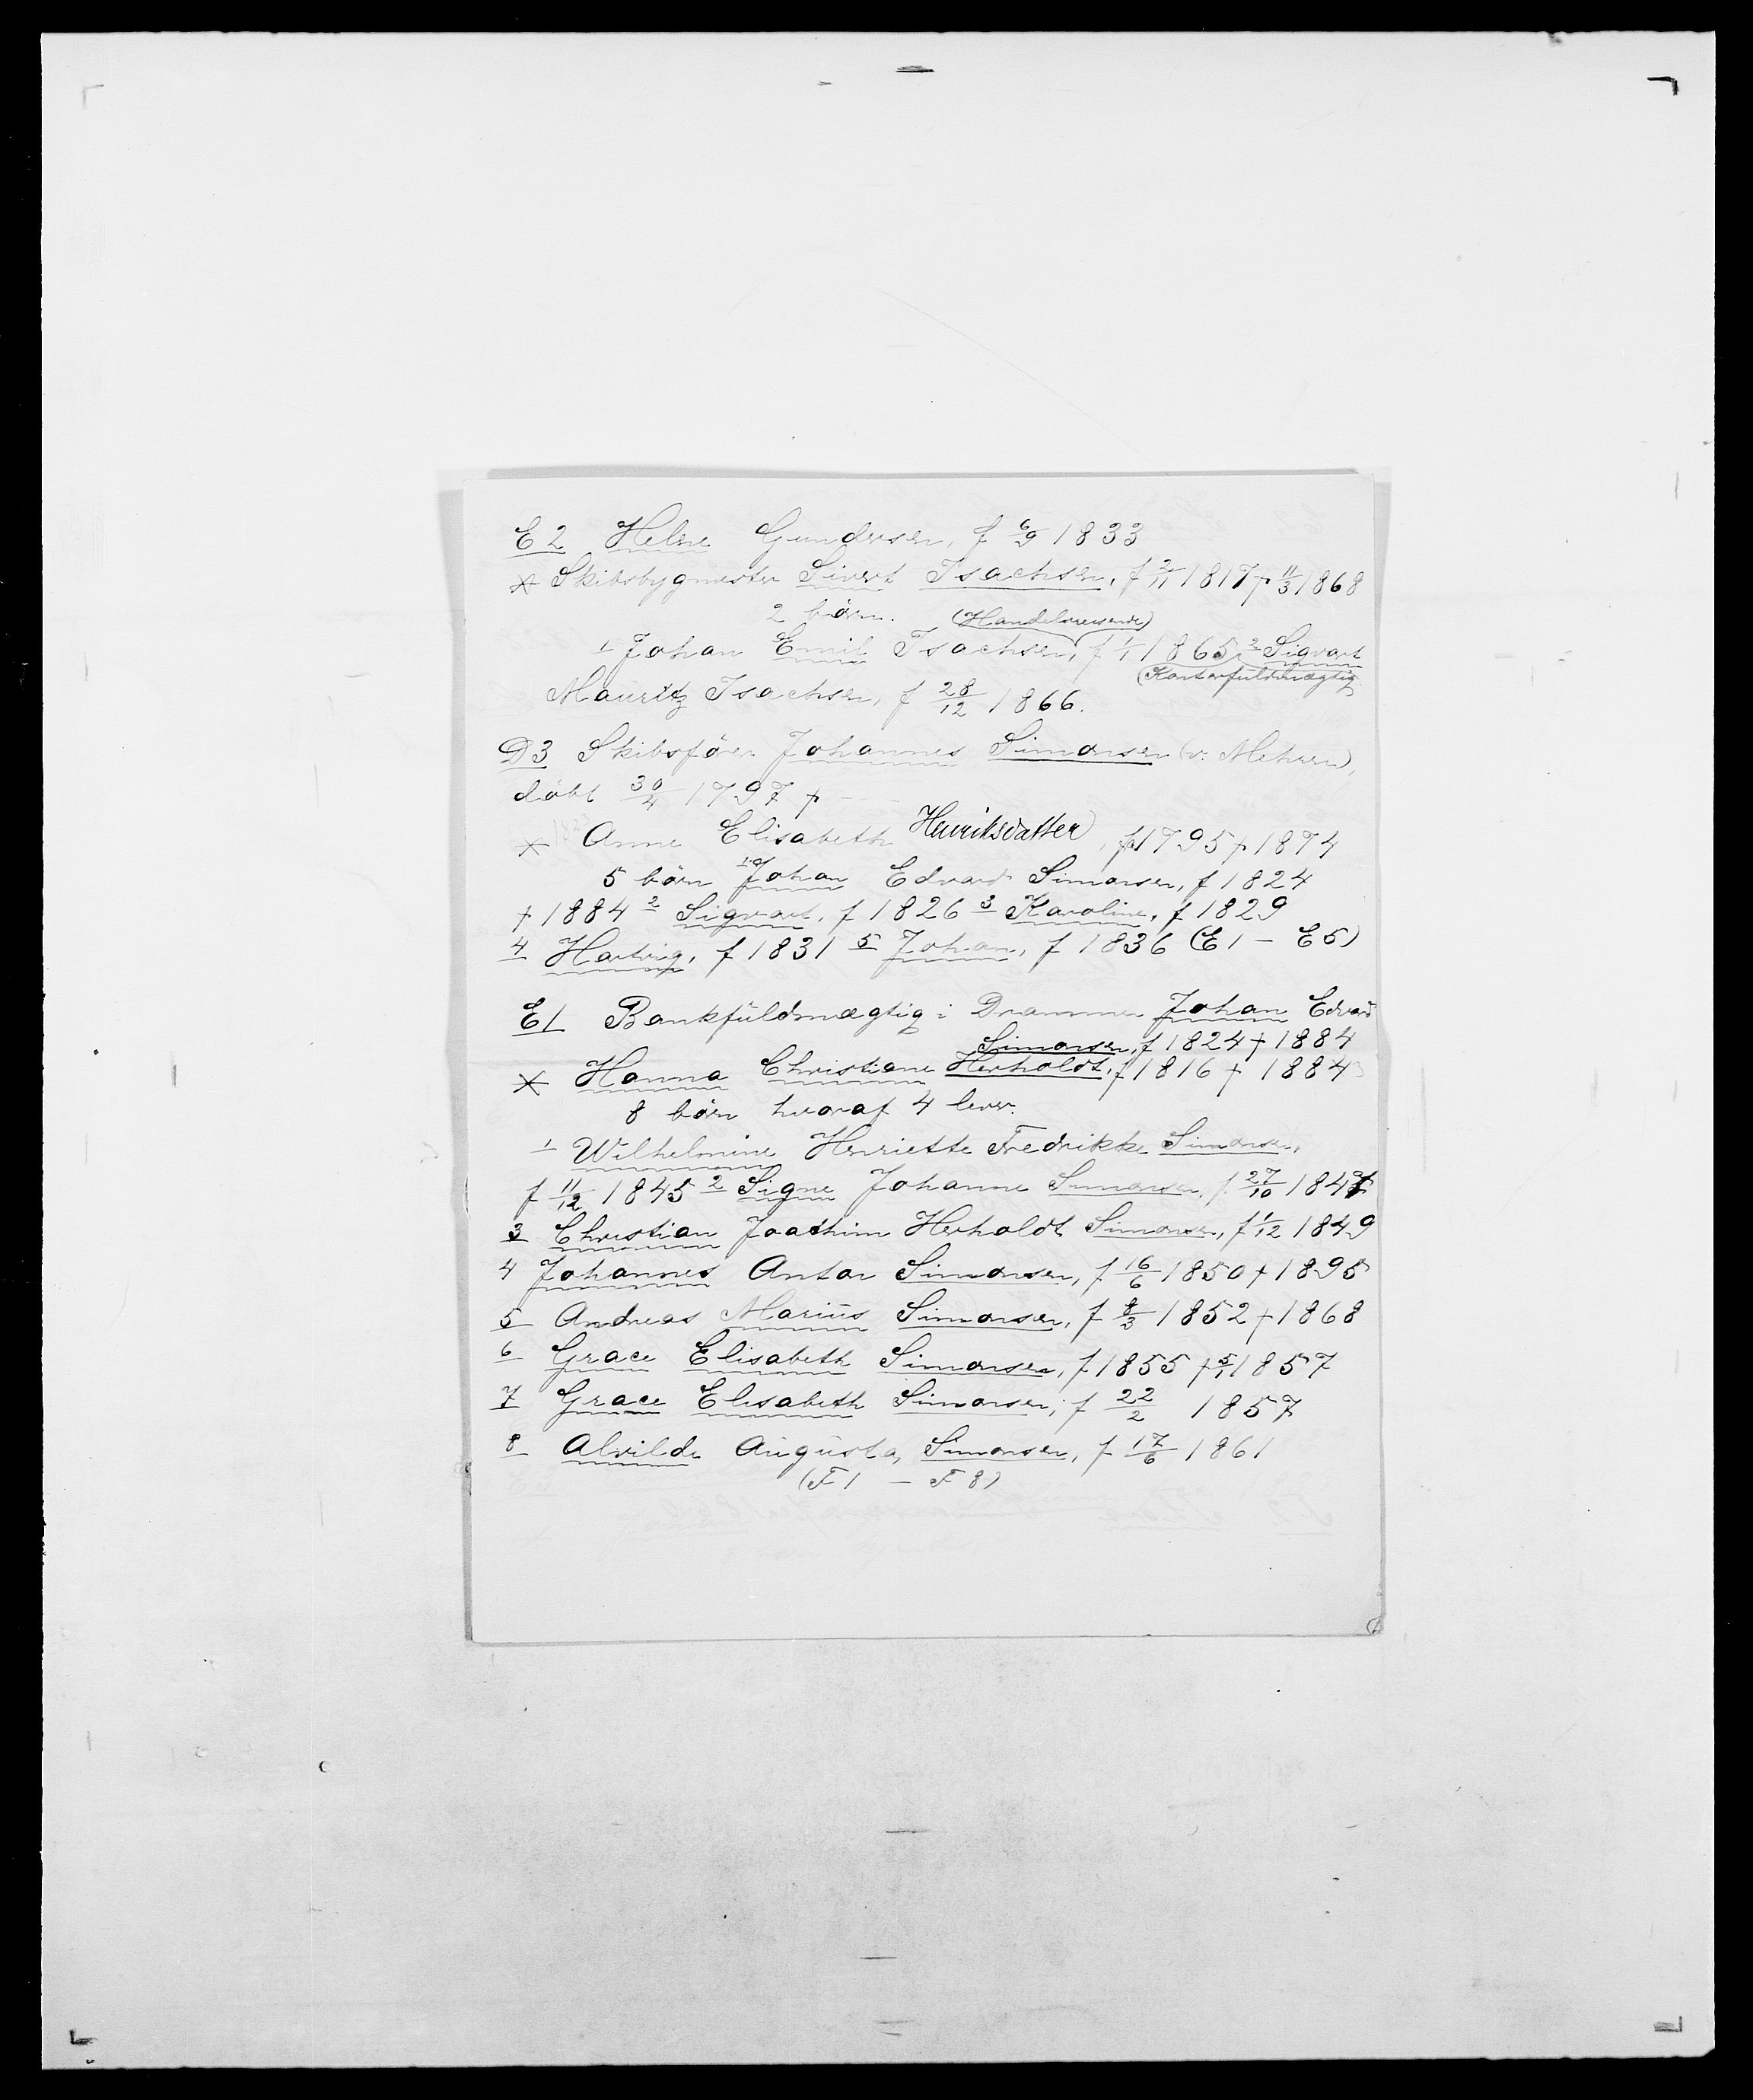 E2 Helene Gundersen, f 6/9 1833
* Skibsbygmester Sivert Isachsen, f 2/11 1817 † 11/3 1868
2 børn. (Handelsreisende)
1 Johan Emil Isachsen, f 1/1 1865 2 Sigvart
(Kontorfuldmægtig
Mauritz Isachsen, f 28/12 1866.
D3 Skibsfører Johannes Simonsen (v. Mehren),
døbt 30/4 1797 †
* Anne Elisabeth Henriksdatter, f 1795 † 1874
5 børn 1 Johan Edvard Simonsen, f 1824
† 1884 2 Sigvart, f 1826 3 Karoline, f 1829
4 Hartvig, f 1831 5 Johan, f 1836 (E1 – E5)
E1 Bankfuldmægtig i Drammen Johan Edvard
Simonsen, f 1824 † 1884
* Hanna Christiane Herholdt, f 1816 † 1884
8 børn hvoraf 4 lever.
1 Wilhelmine Henriette Fredrikke Simonsen,
f 11/12 1845 2 Signe Johanne Simonsen, f 27/10 1847
3 Christian Joachim Herholdt Simonsen, f 1/12 1849
4 Johannes Anton Simonsen, f 16/6 1850 † 1895
5 Andreas Marius Simonsen, f 8/3 1852 † 1868
6 Grace Elisabeth Simonsen, f 1855 † 5/1 1857
7 Grace Elisabeth Simonsen, f 22/2 1857
8 Alvilde Augusta, Simonsen, f 17/6 1861
(F1 – F8)